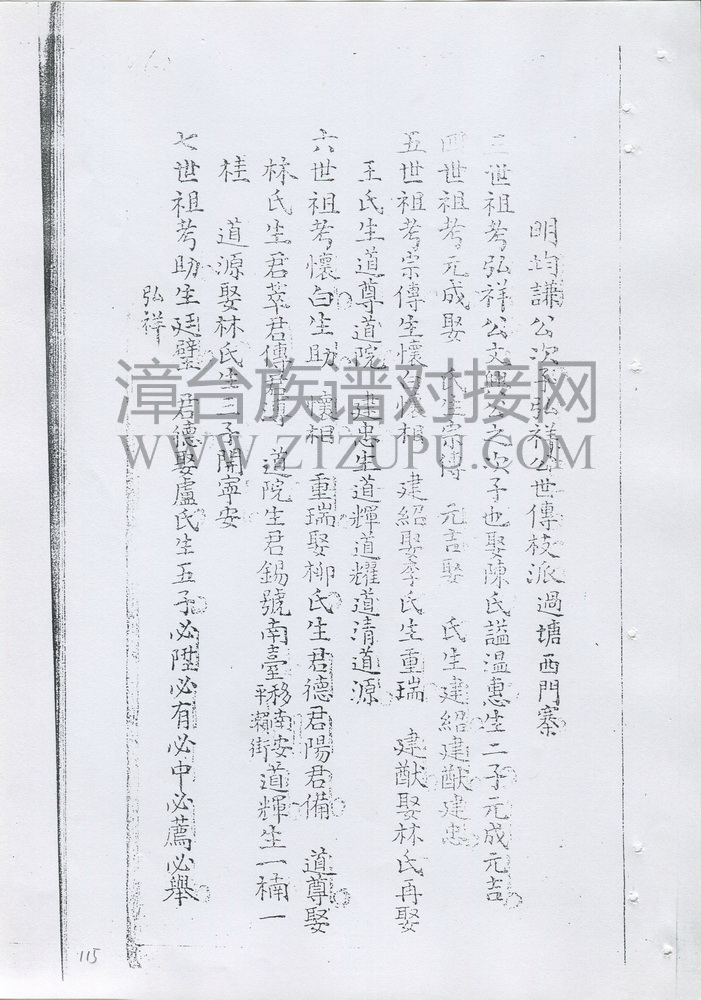 明均謙公次子弘祥公世傳枝派過塘西門寨
三世祖考弘祥公文興公之次子也娶陳氏謚溫惠生二子元成元吉
四世祖考元成娶 氏生宗傳 元吉娶 氏生建紹建猷建忠
五世祖考宗傳生懷白懷相 建紹娶李氏生重瑞 建猷娶林氏再娶
王氏生道尊道院 建忠生道輝道耀道清道源
六世祖考懷白生助 懷相 重瑞娶柳氏生君德君陽君備 道尊娶
林氏生君萃君傳君 道院生君錫號南臺移南安平瀨街道輝生一楠一
桂 道源娶林氏生二子開寧安
七世祖考助生廷璧 君德娶盧氏生五子必陞必有必中必薦必舉
弘祥
115
漳台族谱对接网
WWW.ZTZUPU.COM